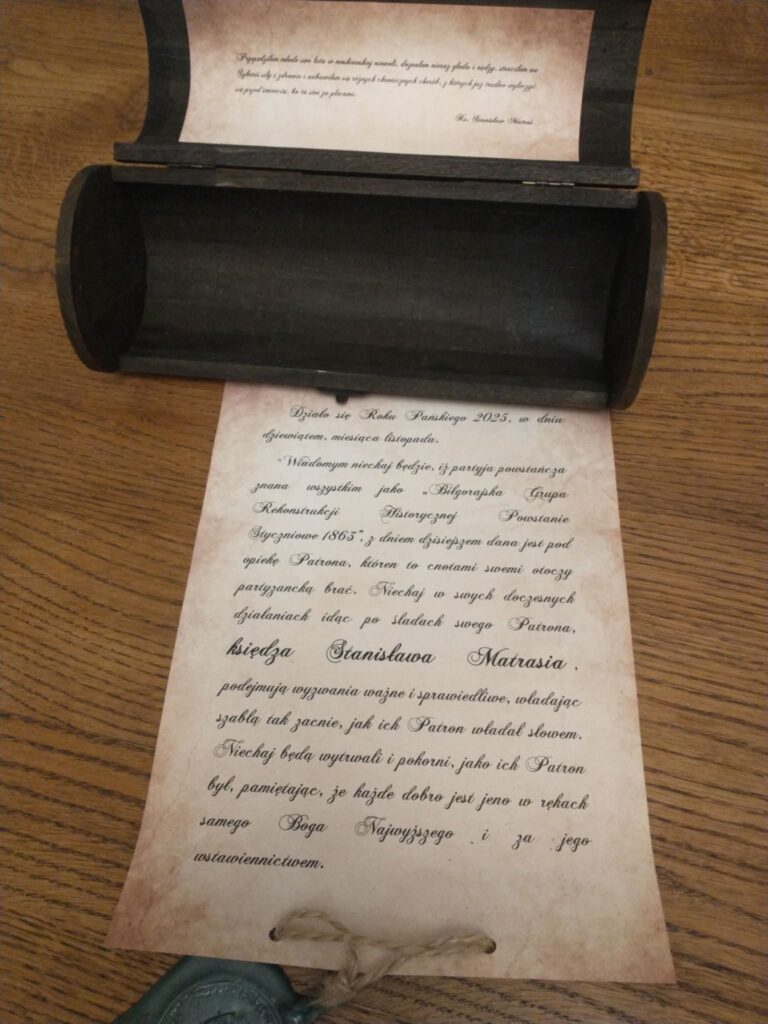 Przepędziłem młode swe lata w moskiewskiej niewoli, doznałem nieraz głodu i nędzy, straciłem na
Syberii siły i zdrowie i nabawiłem się różnych chronicznych chorób, z których już trudno wyleczyć
się przed śmiercią, bo ta stoi za plecami.
Ks. Stanisław Matraś
Działo się Roku Pańskiego 2025, w dniu
dziewiątem, miesiąca listopada.
"Wiadomym niechaj będzie, iż partyja powstańcza
znana wszystkim jako „Biłgorajska Grupa
Rekonstrukcji Historycznej Powstanie
Styczniowe 1863", z dniem dzisiejszem dana jest pod
opiekę Patrona, któren to cnotami swemi otoczy
partyzancką brać. Niechaj w swych doczesnych
działaniach idąc po śladach swego Patrona,
księdza Stanisława Matrasia,
podejmują wyzwania ważne i sprawiedliwe, władając
szablą tak zacnie, jak ich Patron władał słowem.
Niechaj będą wytrwali i pokorni, jako ich Patron
był, pamiętając, że każde dobro jest jeno w rękach
samego Boga Najwyższego i za jego
wstawiennictwem.